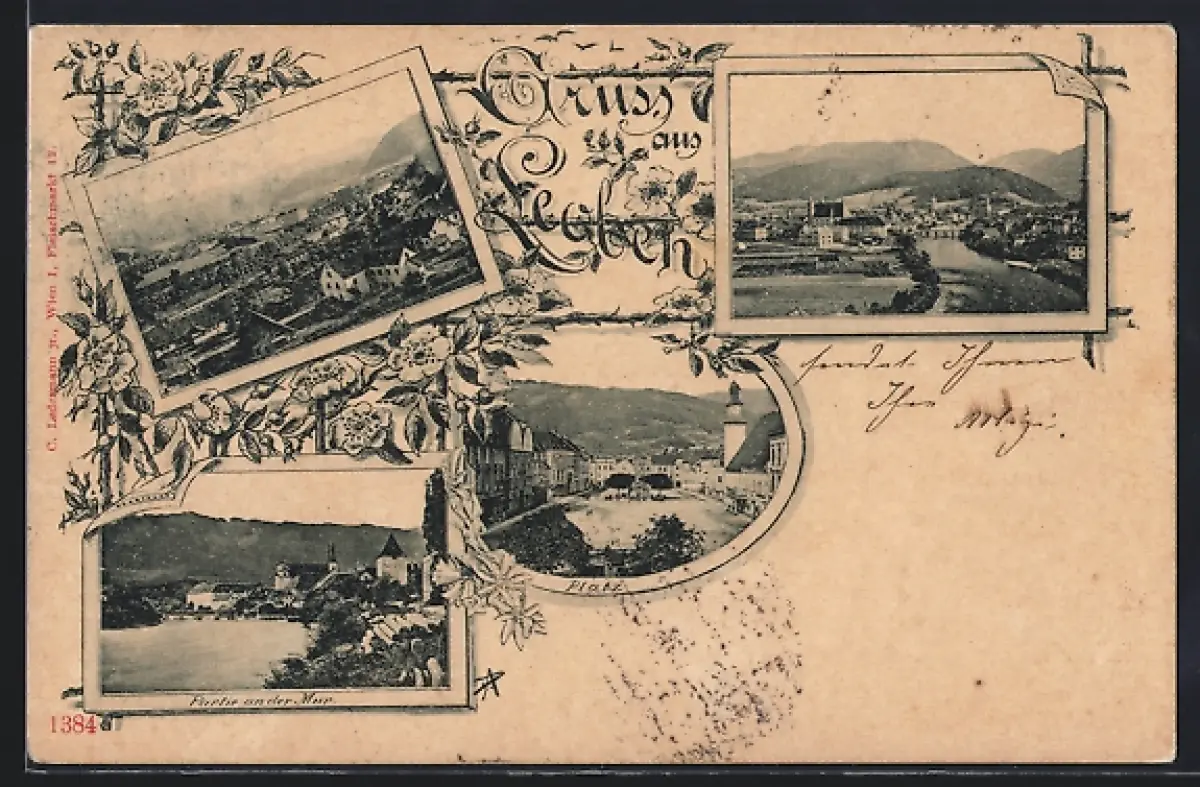 Gruss
aus
Leoben
C. Ledermann Jr., Wien I, Fleischmarkt 12.
sendet Ihnen
Ihre
Platz.
Partie an der Mur.
1384